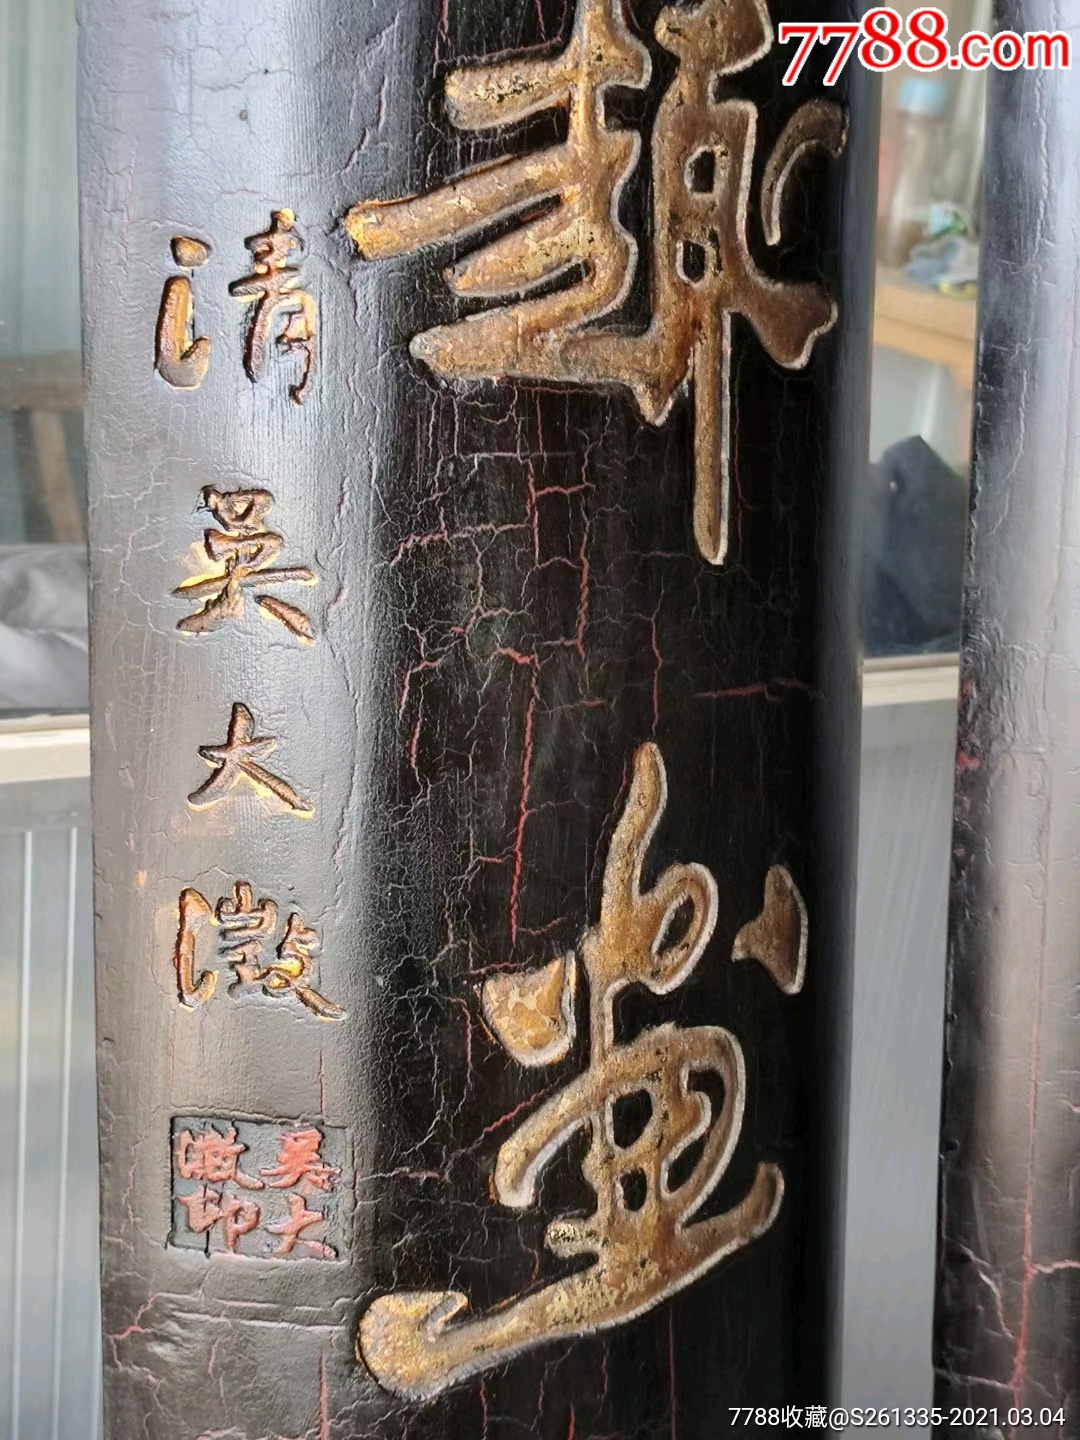 7788.com
清吴大澂
吴大澂印
7788收藏@S261335-2021.03.04